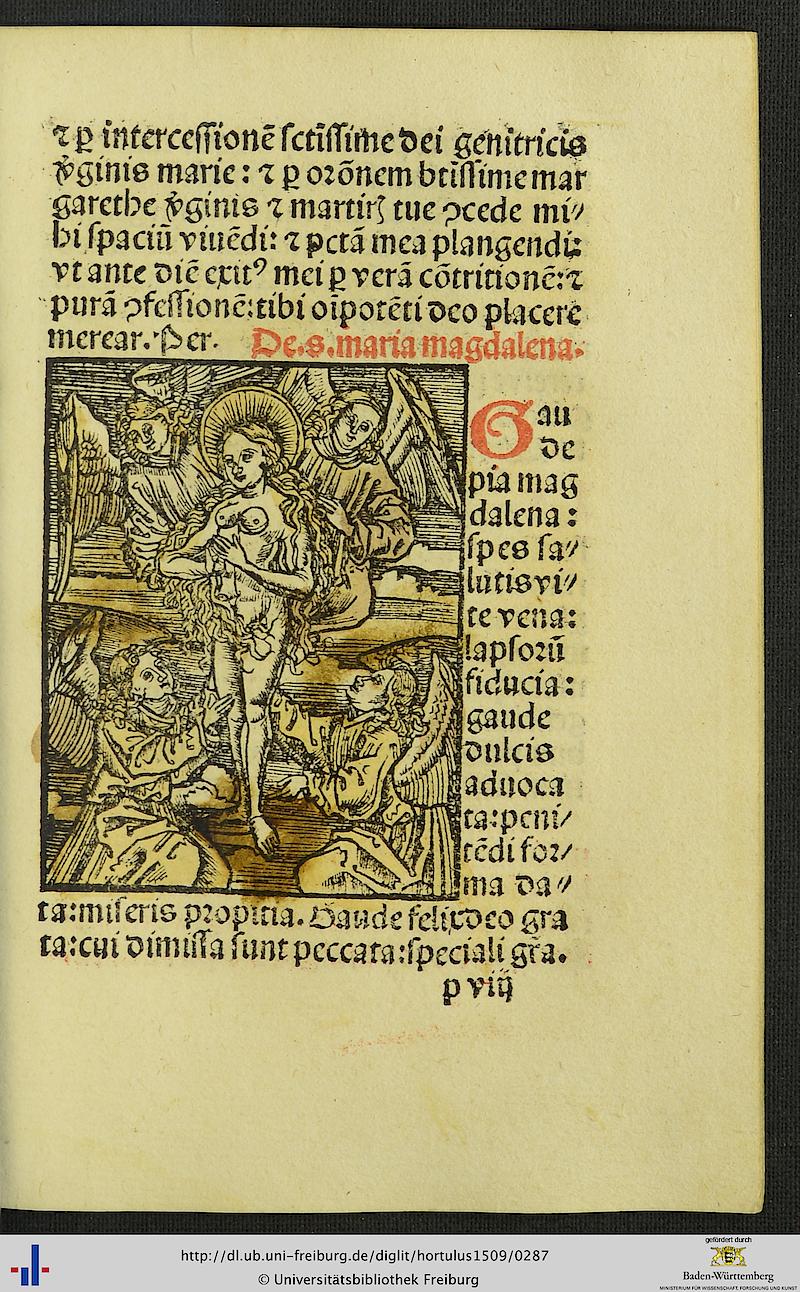 ⁊ ꝑ intercessionē sctissime dei genitricis
v̄ginis marie: ⁊ ꝑ orōnem btissime mar
garethe v̄ginis ⁊ martirꝫ tue ꝯcede mi⸗
hi spaciū viuēdi: ⁊ pctā mea plangendi:
vt ante diē exitꝰ mei ꝑ verā cōtritionē:⁊
purā ꝯfessionē:tibi oīpotēti deo placere
merear. Per. De.s.maria magdalena.
Gau
de
pia mag
dalena:
spes sa⸗
lutis vi⸗
te vena:
lapsorū
fiducia:
gaude
dulcis
aduoca
ta:peni⸗
tēdi for⸗
ma da⸗
ta:miseris propitia. Gaude felix deo gra
ta:cui dimissa sunt peccata:speciali gr̄a.
p viij
http://dl.ub.uni-freiburg.de/diglit/hortulus1509/0287
© Universitätsbibliothek Freiburg
gefördert durch
Baden-Württemberg
MINISTERIUM FÜR WISSENSCHAFT, FORSCHUNG UND KUNST